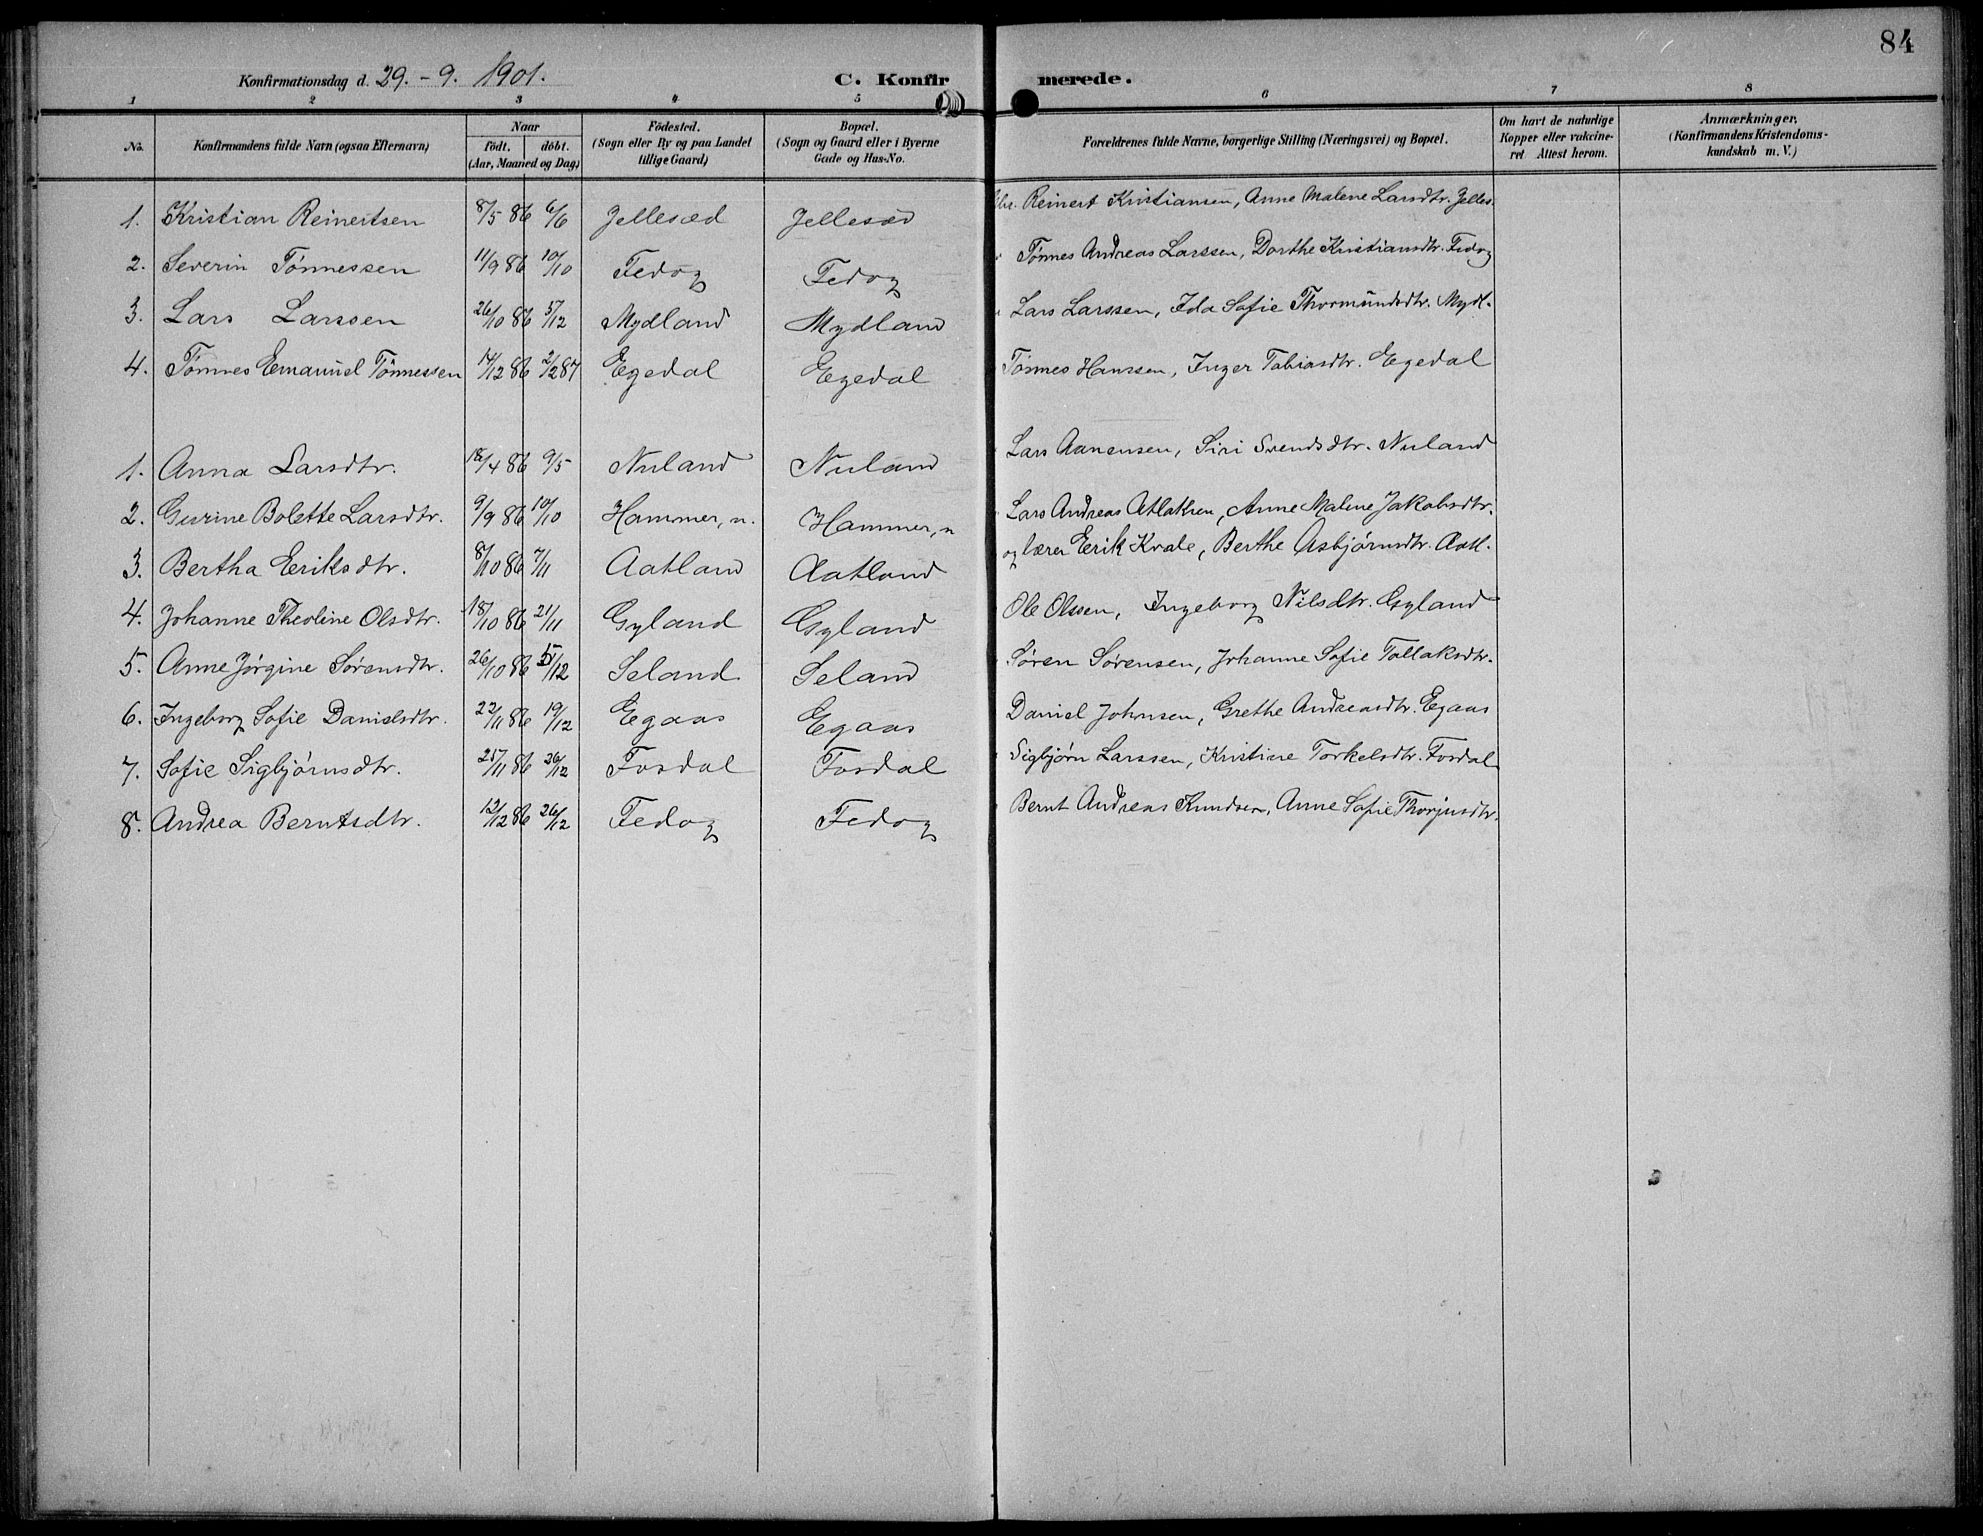 84
Konfirmationsdag d. 29. - 9. 1901. C. Konfirmerede.
1 2 3 4 5 6 7 8
No. Konfirmandens fulde Navn (ogsaa Efternavn) Naar födt. döbt. (Aar, Maaned og Dag) Födested. (Sogn eller By og paa Landet tillige Gaard) Bopæl. (Sogn og Gaard eller i Byerne Gade og Hus-No. Forældrenes fulde Navne, borgerlige Stilling (Næringsvei) og Bopæl. Om havt de naturlige Kopper eller vakcineret Attest herom. Anmærkninger, (Konfirmandens Kristendomskundskab m. V.)
1. Kristian Reinertsen 8/5 86 6/6 Jellesæd Jellesæd Reinert Kristiansen, Anne Malene Larsdtr. Jelles.
2. Severin Tönnessen 11/9 86 10/10 Fedog Fedog Tönnes Andreas Larssen, Dorthe Kristiansdtr. Fedog
3. Lars Larssen 26/10 86 5/12 Mydland Mydland Lars Larssen, Ida Sofie Thormundsdtr. Mydl.
4. Tönnes Emanuel Tönnessen 14/12 86 2/2 87 Egedal Egedal Tönnes Hanssen, Inger Tobiasdtr. Egedal
1. Anna Larsdtr. 18/4 86 9/5 Nuland Nuland Lars Aanensen, Siri Svendsdtr. Nuland
2. Gurine Bolette Larsdtr. 9/9 86 10/10 Hammer, n. Hammer, n Lars Andreas Atlaksen, Anne Malene Jakobsdtr.
3. Bertha Eriksdtr. 8/10 86 7/11 Aatland Aatland og lærer Erik Kvale, Berthe Asbjörnsdtr. Aatl.
4. Johanne Theoline Olsdtr. 18/10 86 21/11 Gyland Gyland Ole Olssen, Ingeborg Nilsdtr. Gyland
5. Anne Jörgine Sörensdtr. 26/10 86 5/12 Seland Seland Sören Sörensen, Johanne Sofie Tollaksdtr.
6. Ingeborg Sofie Danielsdtr. 22/11 86 19/12 Egaas Egaas Daniel Johnsen, Grethe Andreasdtr. Egaas
7. Sofie Sigbjörnsdtr. 25/11 86 26/12 Fosdal Fosdal Sigbjörn Larssen, Kristine Torkelsdtr. Fosdal
8. Andrea Berntsdtr. 12/12 86 26/12 Fedog Fedog Bernt Andreas Knudsen, Anne Sofie Thorjusdtr.